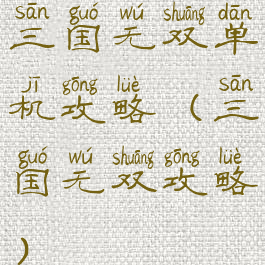 sān guó wú shuāng dān
三国无双单
jī gōng lüè sān
机攻略（三
guó wú shuāng gōng lüè
国无双攻略
）